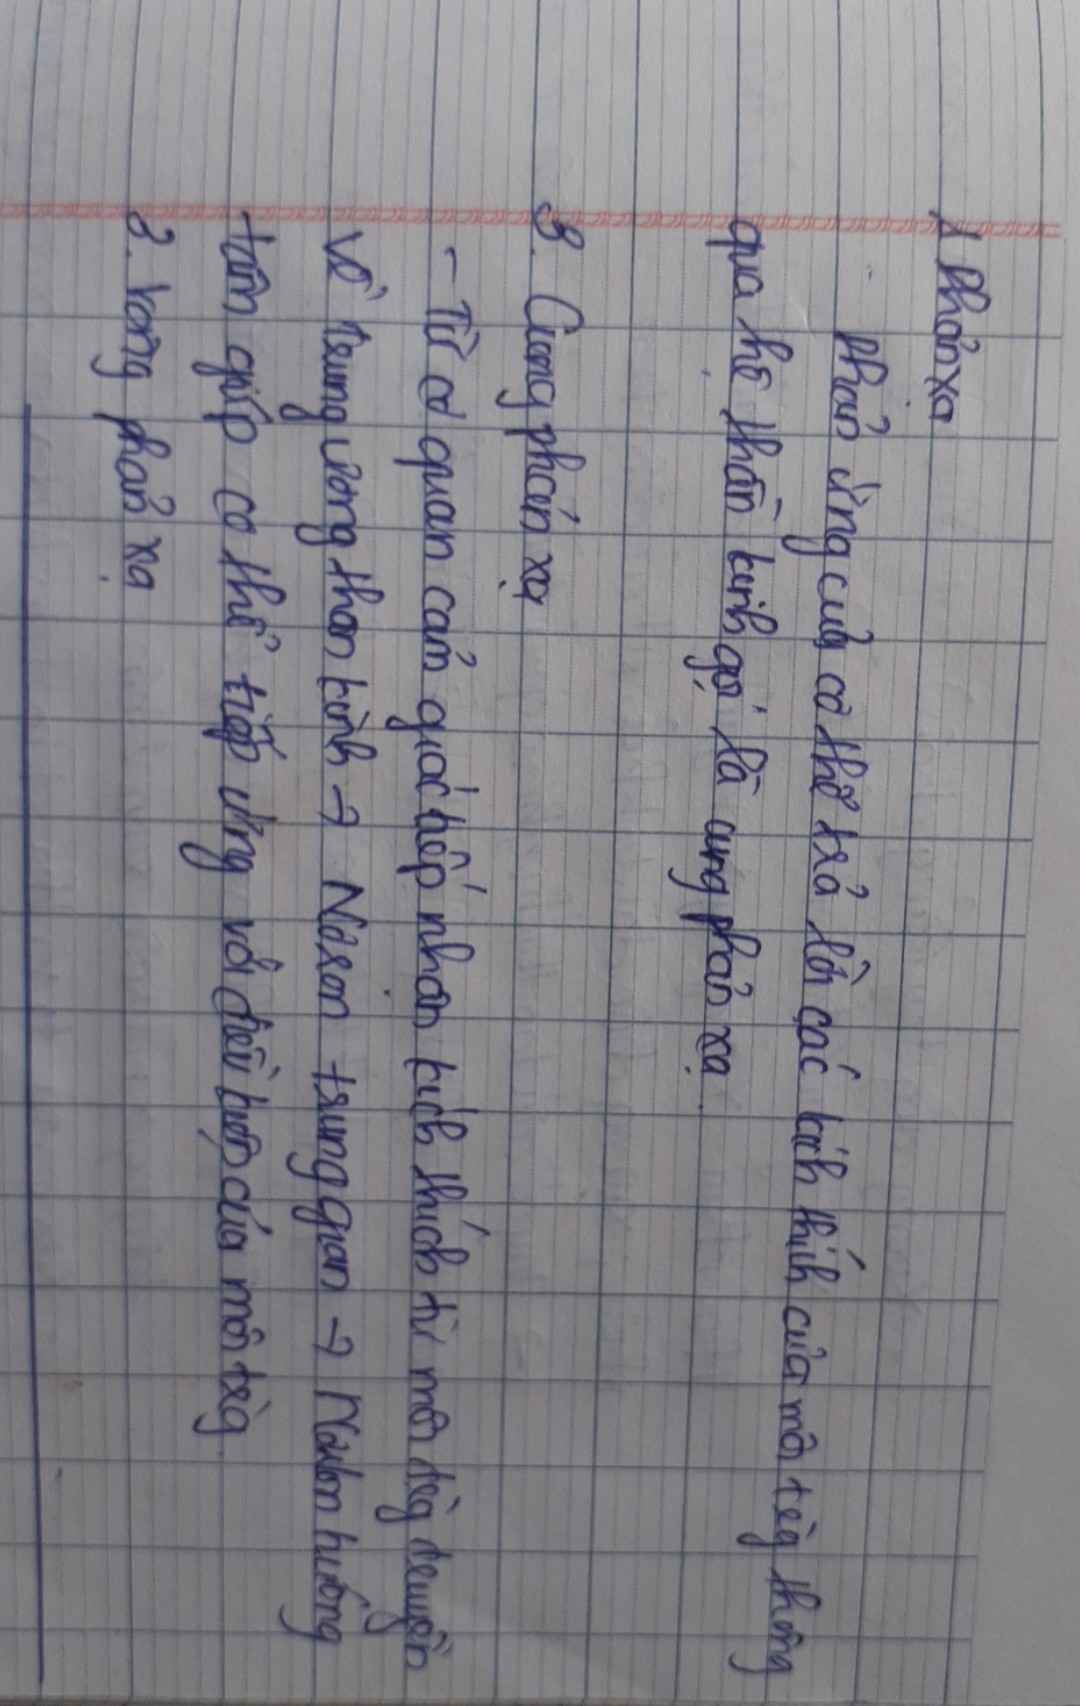 1 Phản xạ
- Phản ứng của cơ thể trả lời các kích thích của môi trg thông
qua hệ thần kinh gọi là cung phản xạ.
B. Cung phản xạ
- Từ cơ quan cảm giác tiếp nhận kích thích từ môi trg truyền
về trung ương thần kinh → Nơron trung gian → Nơron hướng
tâm giúp cơ thể tiếp ứng với điều kiện của môi trg.
2. Vòng phản xạ